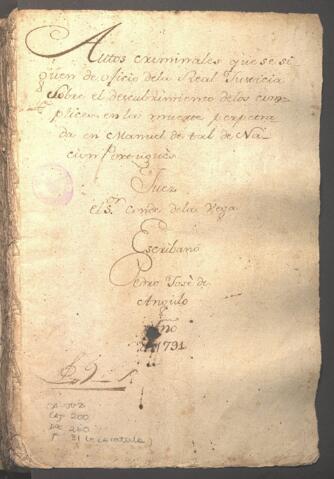 Autos criminales que se si
guen de oficio dela Real Justicia
sobre el descubrimiento delos com
plices en la muerte perpetra
da en Manuel de tal de Na
cion Portugues
Juez
el S.r Conde dela Vega
Escribano
Pedro José de
Angulo
Año
1791
200